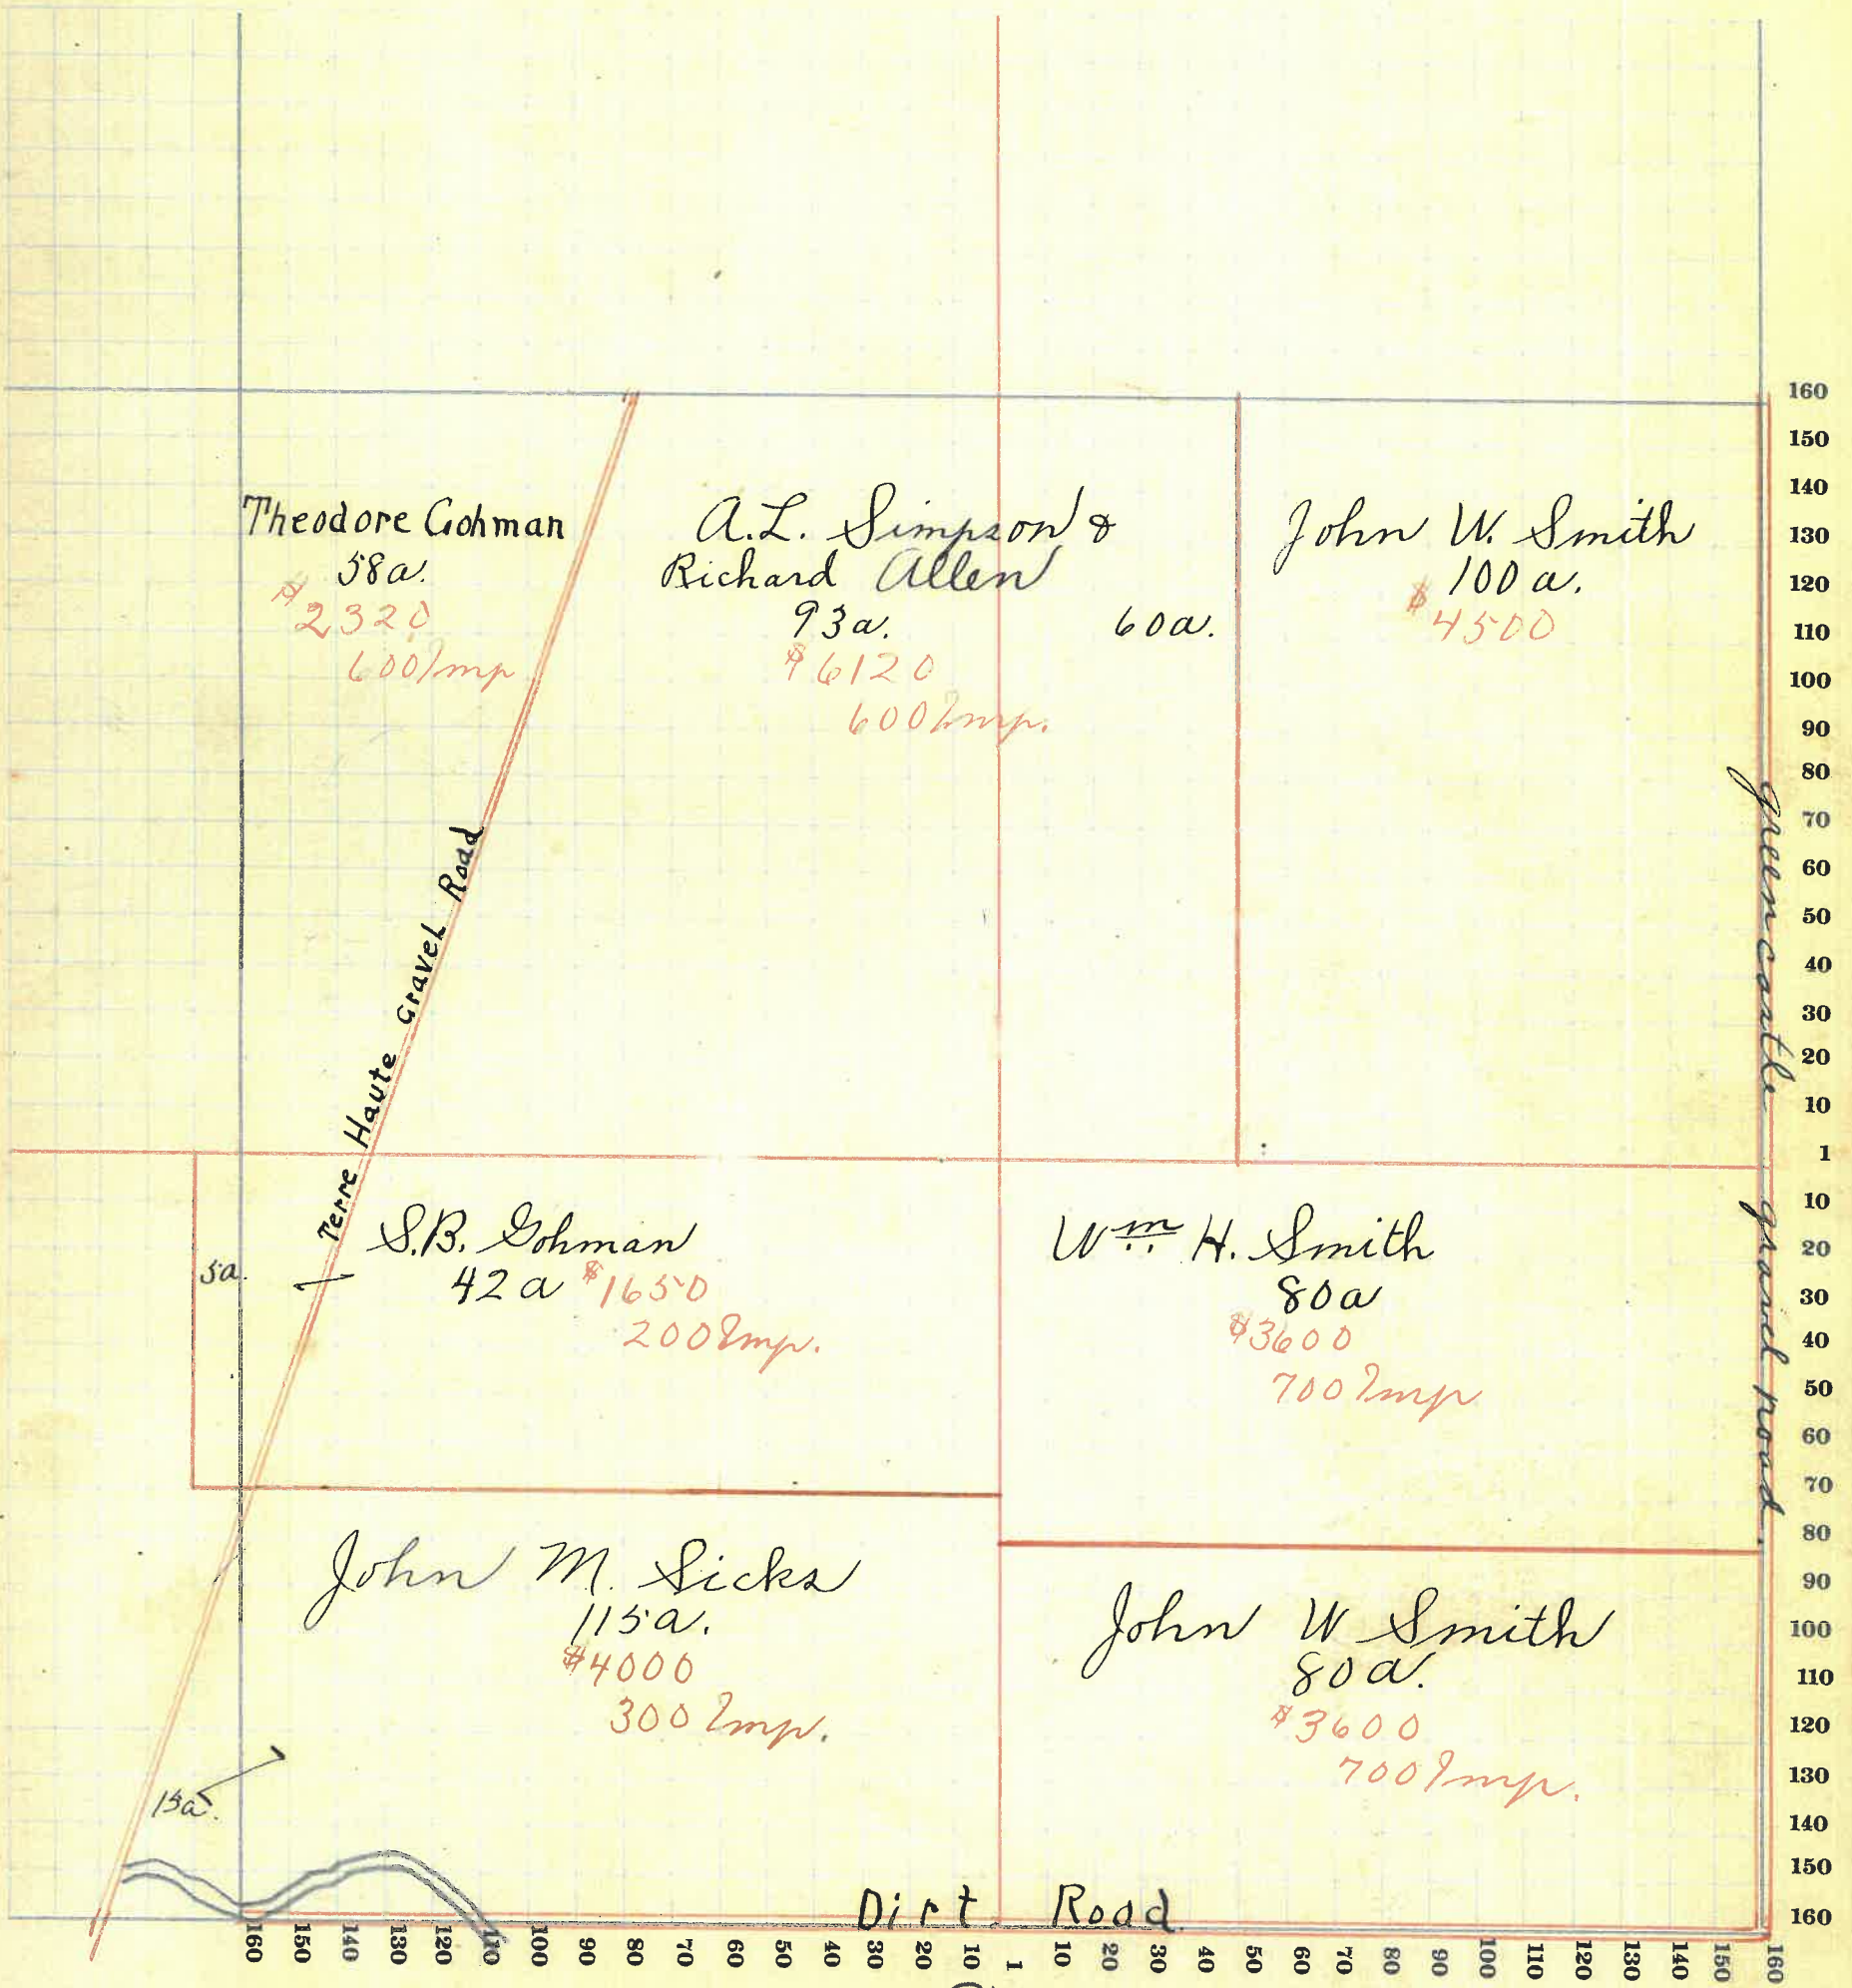 Theodore Gohman
58a.
$2320
600 Imp
A.L. Simpson &
Richard Allen
93a.
60a.
$6120
600 Imp.
John W. Smith
100 a.
$4500
Terre Haute Gravel Road
Greencastle gravel road.
5a.
S.B. Gohman
42a $1650
200 Imp.
Wm H. Smith
80a
$3600
700 Imp
John M. Sicks
115a.
$4000
300 Imp.
15a.
John W Smith
80a.
$3600
700 Imp.
Dirt Road
160
150
140
130
120
110
100
90
80
70
60
50
40
30
20
10
1
10
20
30
40
50
60
70
80
90
100
110
120
130
140
150
160
160 150 140 130 120 110 100 90 80 70 60 50 40 30 20 10 1 10 20 30 40 50 60 70 80 90 100 110 120 130 140 150 160